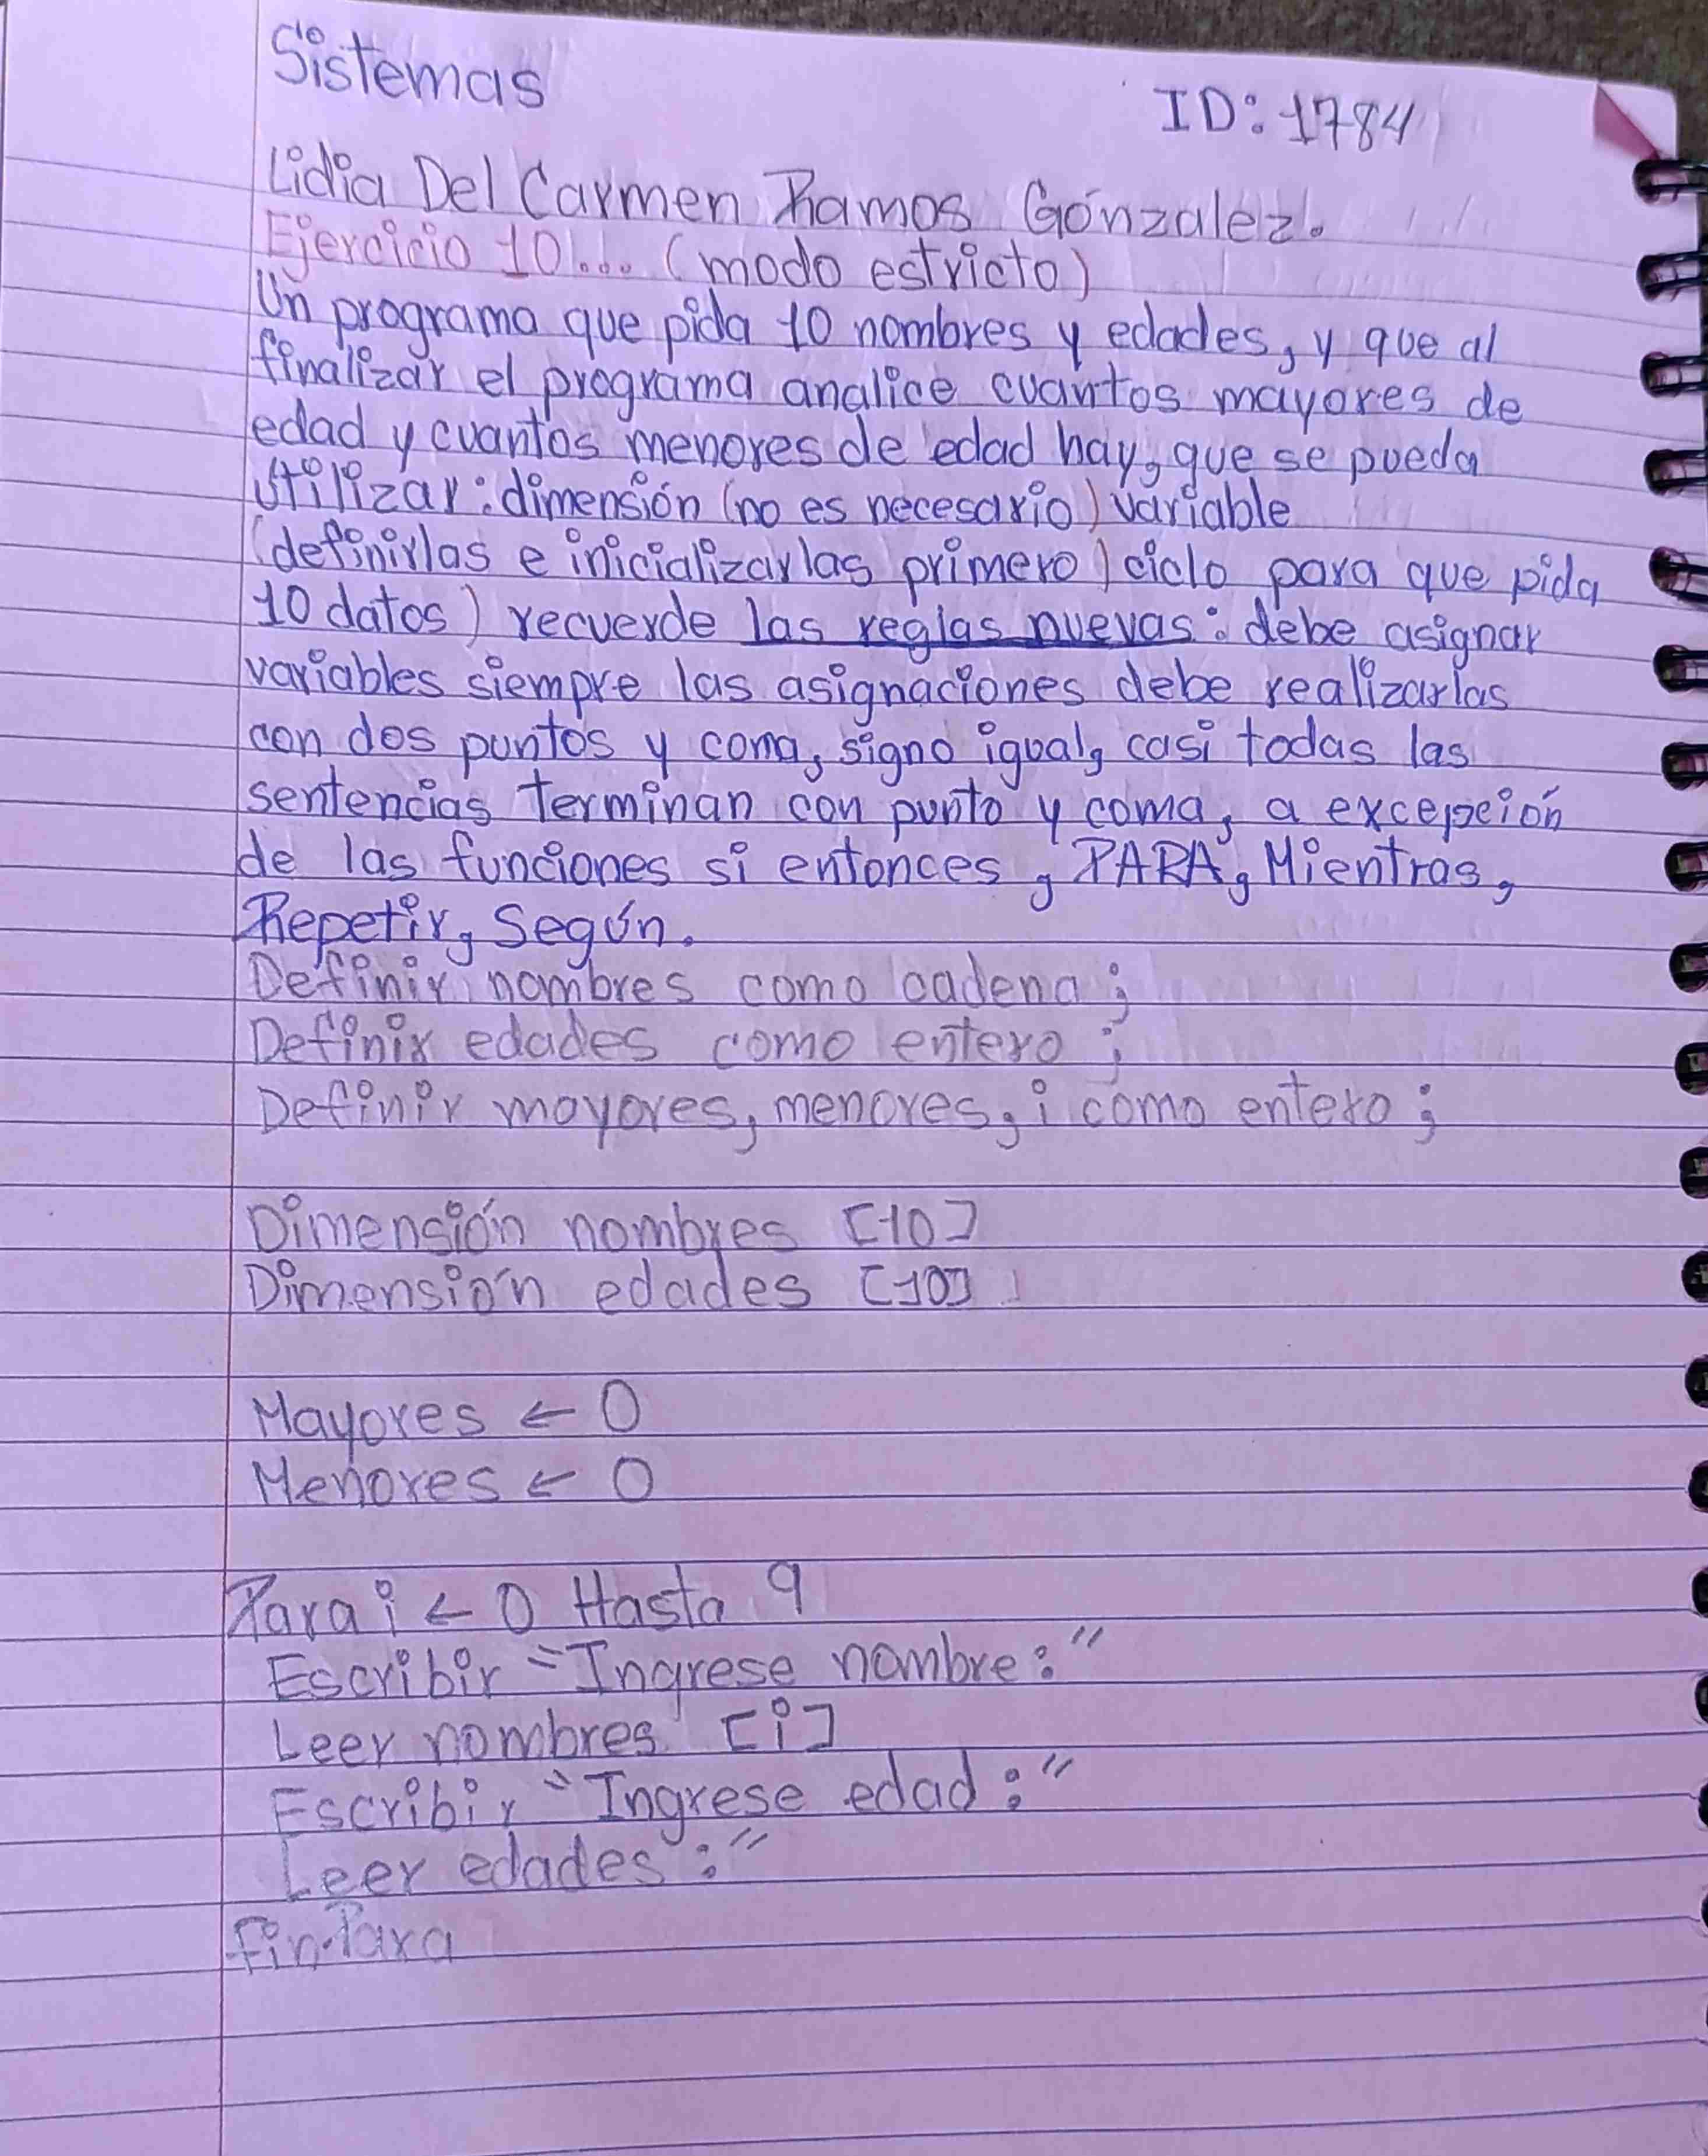 Sistemas
ID: 1784
Lidia Del Carmen Ramos Gónzalez.
Ejercicio 10... (modo estricto)
Un programa que pida 10 nombres y edades, y que al
finalizar el programa analice cuantos mayores de
edad y cuantos menores de edad hay, que se pueda
utilizar: dimensión (no es necesario) variable
(definirlas e inicializarlas primero) ciclo para que pida
10 datos) recuerde las reglas nuevas: debe asignar
variables siempre las asignaciones debe realizarlas
con dos puntos y coma, signo igual, casi todas las
sentencias terminan con punto y coma, a excepción
de las funciones si entonces, PARA, Mientras,
Repetir, Según.
Definir nombres como cadena;
Definir edades como entero;
Definir mayores, menores, i como entero;
Dimensión nombres [10]
Dimensión edades [10]
Mayores ← 0
Menores ← 0
Para i ← 0 Hasta 9
Escribir "Ingrese nombre:"
Leer nombres [i]
Escribir "Ingrese edad:"
Leer edades:"
finPara